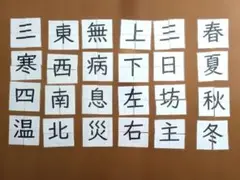 春夏秋冬
三日坊主
上下左右
無病息災
東西南北
三寒四温